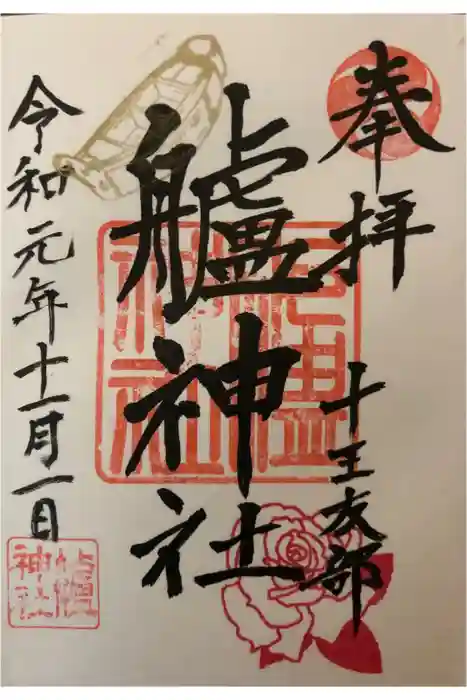 奉拝
十王友部
艫神社
令和元年十一月一日
艫
神社
艫
神社